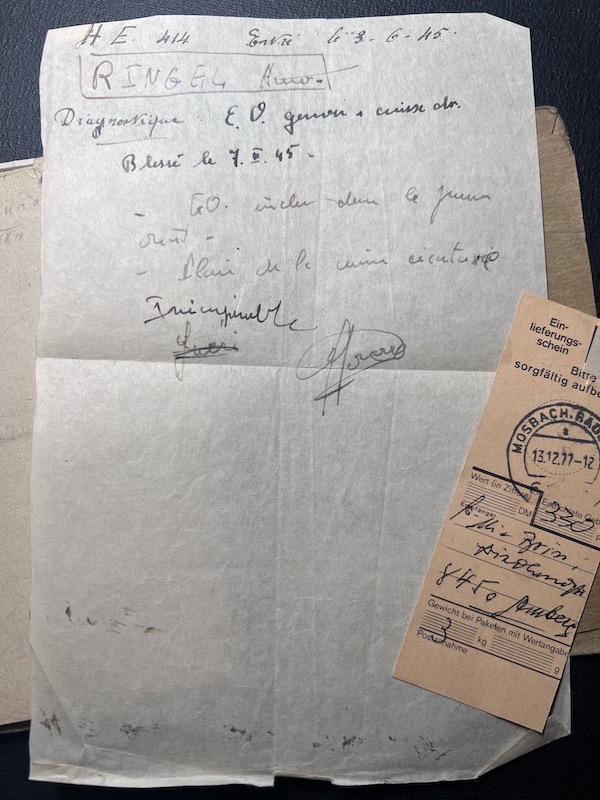 H. E. 414 Entré le 3-6-45.
RINGEL
Diagnostique : E. O. genou + cuisse dr.
Blessé le 7. II. 45 -
- E.O. inclus dans le genou
droit -
- Plaie de la cuisse cicatrisée
Ein-
lieferungs-
schein
Bitte
sorgfältig aufbe
MOSBACH, BADE
a
13.12.77-12
Wert (in Ziffern)
DM
330
Empfänger
8450 Amberg
Gewicht bei Paketen mit Wertangabe
3 kg g
Postannahme